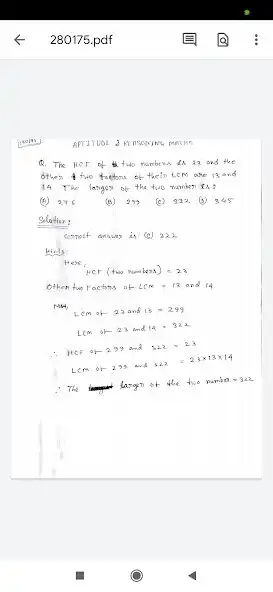 280175.pdf
APTITUDE & REASONING
Q. The HCF of two numbers is 23 and the
other two factors of their LCM are 13 and
14. The larger of the two number is?
(A) 276 (B) 299 (C) 322 (D) 345
Solution:
Correct answer is (C) 322
Hints:
Here,
HCF (two numbers) = 23
Other two Factors of LCM = 13 and 14
Now,
LCM of 23 and 13 = 299
LCM of 23 and 14 = 322
∴ HCF of 299 and 322 = 23
LCM of 299 and 322 = 23×13×14
∴ The larger of the two number = 322